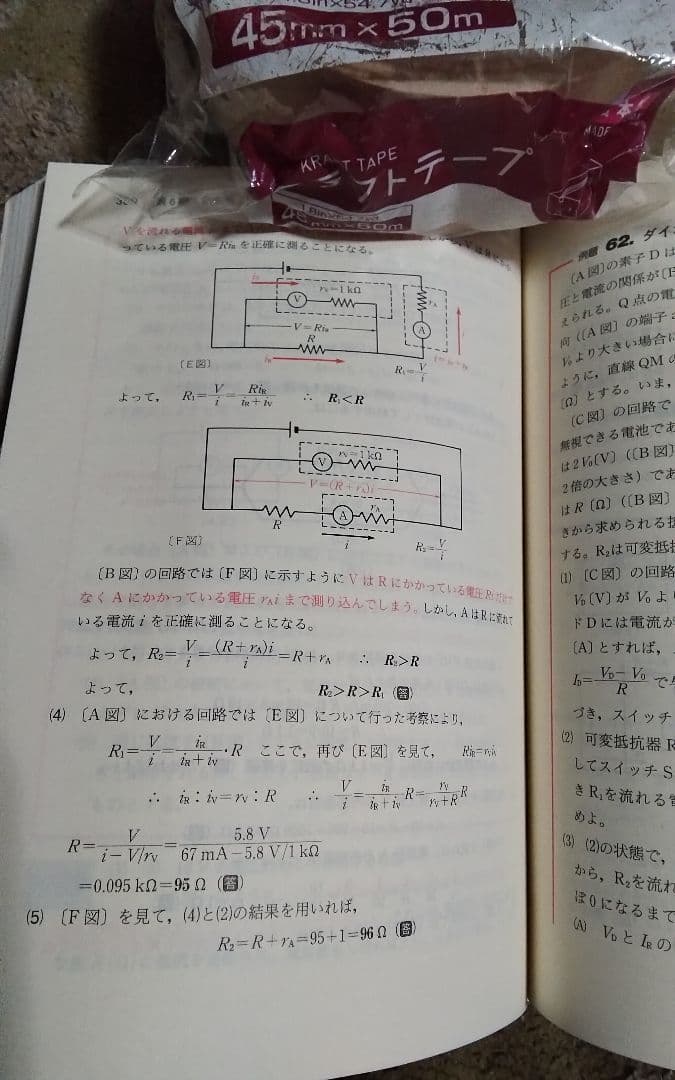 45mm × 50m
KRAFT TAPE
フトテープ
MADE
本
45mm×50m
っている電圧 V=Riʀ を正確に測ることになる。
rᵥ=1 kΩ
V
V=Riʀ
R
rA
A
i
〔E図〕
R₁=V/i
よって, R₁=V/i=Riʀ/(iʀ+iᵥ) ∴ R₁<R
rᵥ=1 kΩ
V
V=(R+rA)i
R
A
rA
i
〔F図〕
R₂=V/i
〔B図〕の回路では〔F図〕に示すように V は R にかかっている電圧
なく A にかかっている電圧 rAi まで測り込んでしまう。しかし, A は R に流れて
いる電流 i を正確に測ることになる。
よって, R₂=V/i=(R+rA)i/i=R+rA ∴ R₂>R
よって, R₂>R>R₁ (答)
(4) 〔A図〕における回路では〔E図〕について行った考察により,
R₁=V/i=iʀ/(iʀ+iᵥ)・R ここで, 再び〔E図〕を見て, Riʀ=rᵥiᵥ
∴ iʀ:iᵥ=rᵥ:R ∴ V/i=iʀ/(iʀ+iᵥ)R=rᵥ/(rᵥ+R)R
R=V/(i−V/rᵥ)=5.8 V/(67 mA−5.8 V/1 kΩ)
=0.095 kΩ=95 Ω (答)
(5) 〔F図〕を見て, (4)と(2)の結果を用いれば,
R₂=R+rA=95+1=96 Ω (答)
例題 62. ダイ
〔A図〕の素子 D は
圧と電流の関係が〔B
えられる。Q点の電
向(〔A図〕の端子
V₀より大きい場合に
ように, 直線 QM の
〔Ω〕とする。いま,
〔C図〕の回路で
無視できる電池であ
は 2V₀〔V〕(〔B図〕
2倍の大きさ) であ
は R〔Ω〕(〔B図〕
きから求められる抵
する。R₂は可変抵抗
(1) 〔C図〕の回路
V_D〔V〕が V₀ より
ド D には電流が
〔A〕とすれば,
I_D=(V_D−V₀)/R で
づき, スイッチ
(2) 可変抵抗器 R
してスイッチ S
き R₁を流れる電
めよ。
(3) (2)の状態で,
から, R₂を流れ
ぼ0になるまで
(A) V_D と I_R の